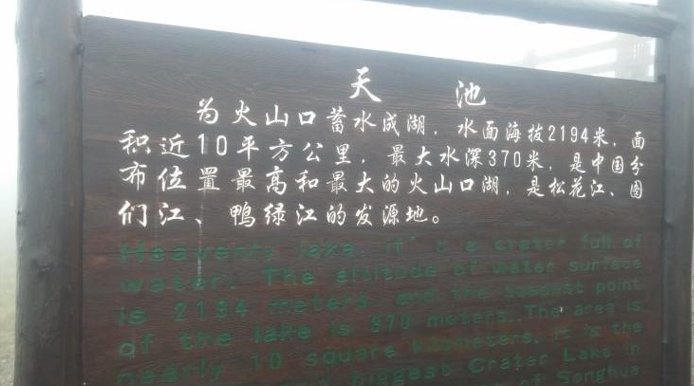 天 池
为火山口蓄水成湖，水面海拔2194米，面
积近10平方公里，最大水深370米，是中国分
布位置最高和最大的火山口湖，是松花江、图
们江、鸭绿江的发源地。
Heavenly lake, it's a crater full of
water. The altitude of water surface
is 2194 meters, and the deepest point
of the lake is 370 meters. The area is
nearly 10 square kilometers, it is the
biggest Crater Lake in
Songhua